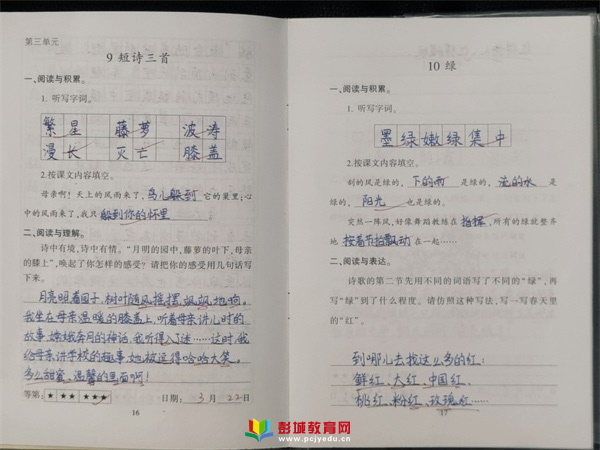 第三单元
9 短诗三首
一、阅读与积累。
1. 听写字词。
繁星 藤萝 波涛
漫长 灭亡 膝盖
2.按课文内容填空。
母亲啊！天上的风雨来了，鸟儿躲到它的巢里；心
中的风雨来了，我只躲到你的怀里。
二、阅读与理解。
诗中有境，诗中有情。“月明的园中，藤萝的叶下，母亲
的膝上”，唤起了你怎样的感受？请把你的感受用几句话写
下来。
月亮照着园子，树叶随风摇摆，飒飒地响。
我坐在母亲温暖的膝盖上，听着母亲讲儿时的
故事，嫦娥奔月的神话，我听得入了迷……这时，我
给母亲讲学校的趣事，她被逗得哈哈大笑。
多么甜蜜、温馨的画面啊！
等第：★★★ ★★★ 日期：3月22日
16
10 绿
一、阅读与积累。
1. 听写字词。
墨绿嫩绿集中
2.按课文内容填空。
刮的风是绿的，下的雨是绿的，流的水是
绿的，阳光也是绿的。
突然一阵风，好像舞蹈教练在指挥，所有的绿就整齐
地按着节拍飘动在一起……
二、阅读与表达。
诗歌的第二节先用不同的词语写了不同的“绿”，再
写“绿”到了什么程度。请仿照这种写法，写一写春天里
的“红”。
到哪儿去找这么多的红：
鲜红、大红、中国红、
桃红、粉红、玫瑰红……
17
彭城教育网
www.pcjyedu.cn